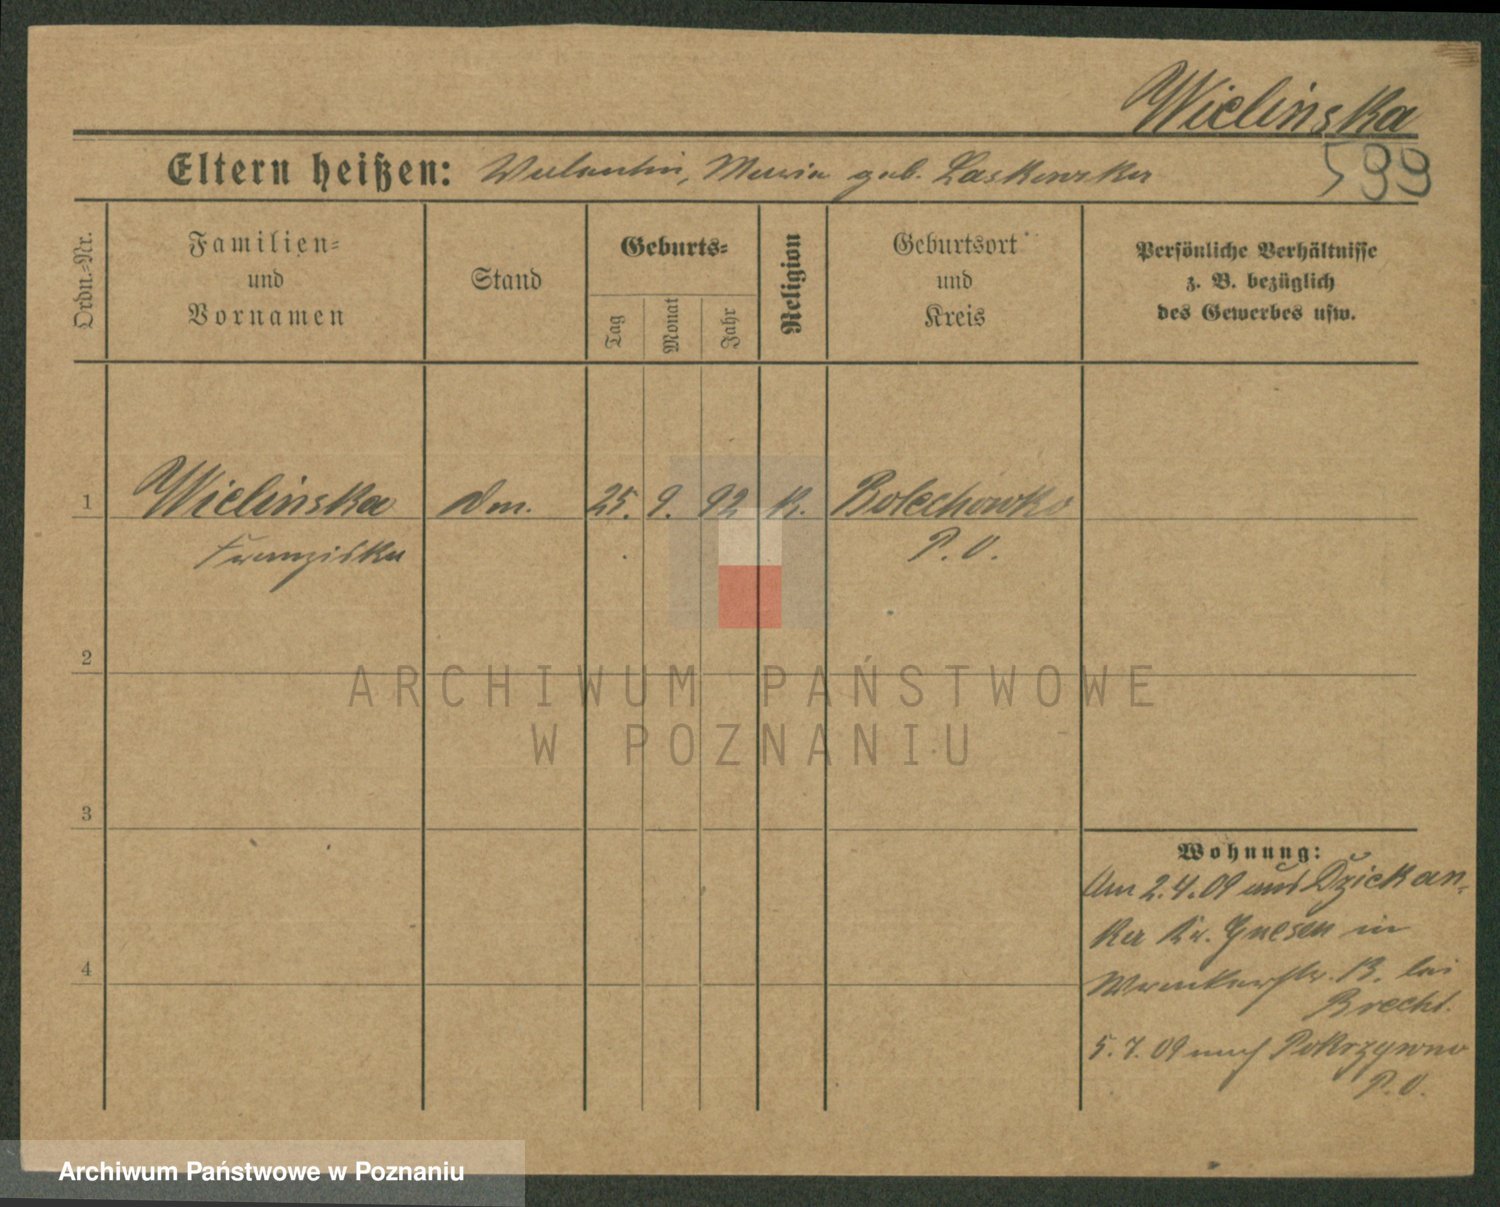 Wielińska
599
Eltern heißen: Valentin, Maria geb. Laskowska
Ordn.-Nr.
Familien-
und
Vornamen
Stand
Geburts-
Tag
Monat
Jahr
Religion
Geburtsort
und
Kreis
Persönliche Verhältnisse
z. B. bezüglich
des Gewerbes usw.
1 Wielińska 25. 9. 92 K. Bolechowko
Franziska P. O.
2
ARCHIWUM PAŃSTWOWE
W POZNANIU
3
Wohnung:
Am 2.4.09 aus Dziekan-
ka Kr. Gnesen in
4
13. bei
Brecht.
5.7.09 nach Pokrzywno
P. O.
Archiwum Państwowe w Poznaniu